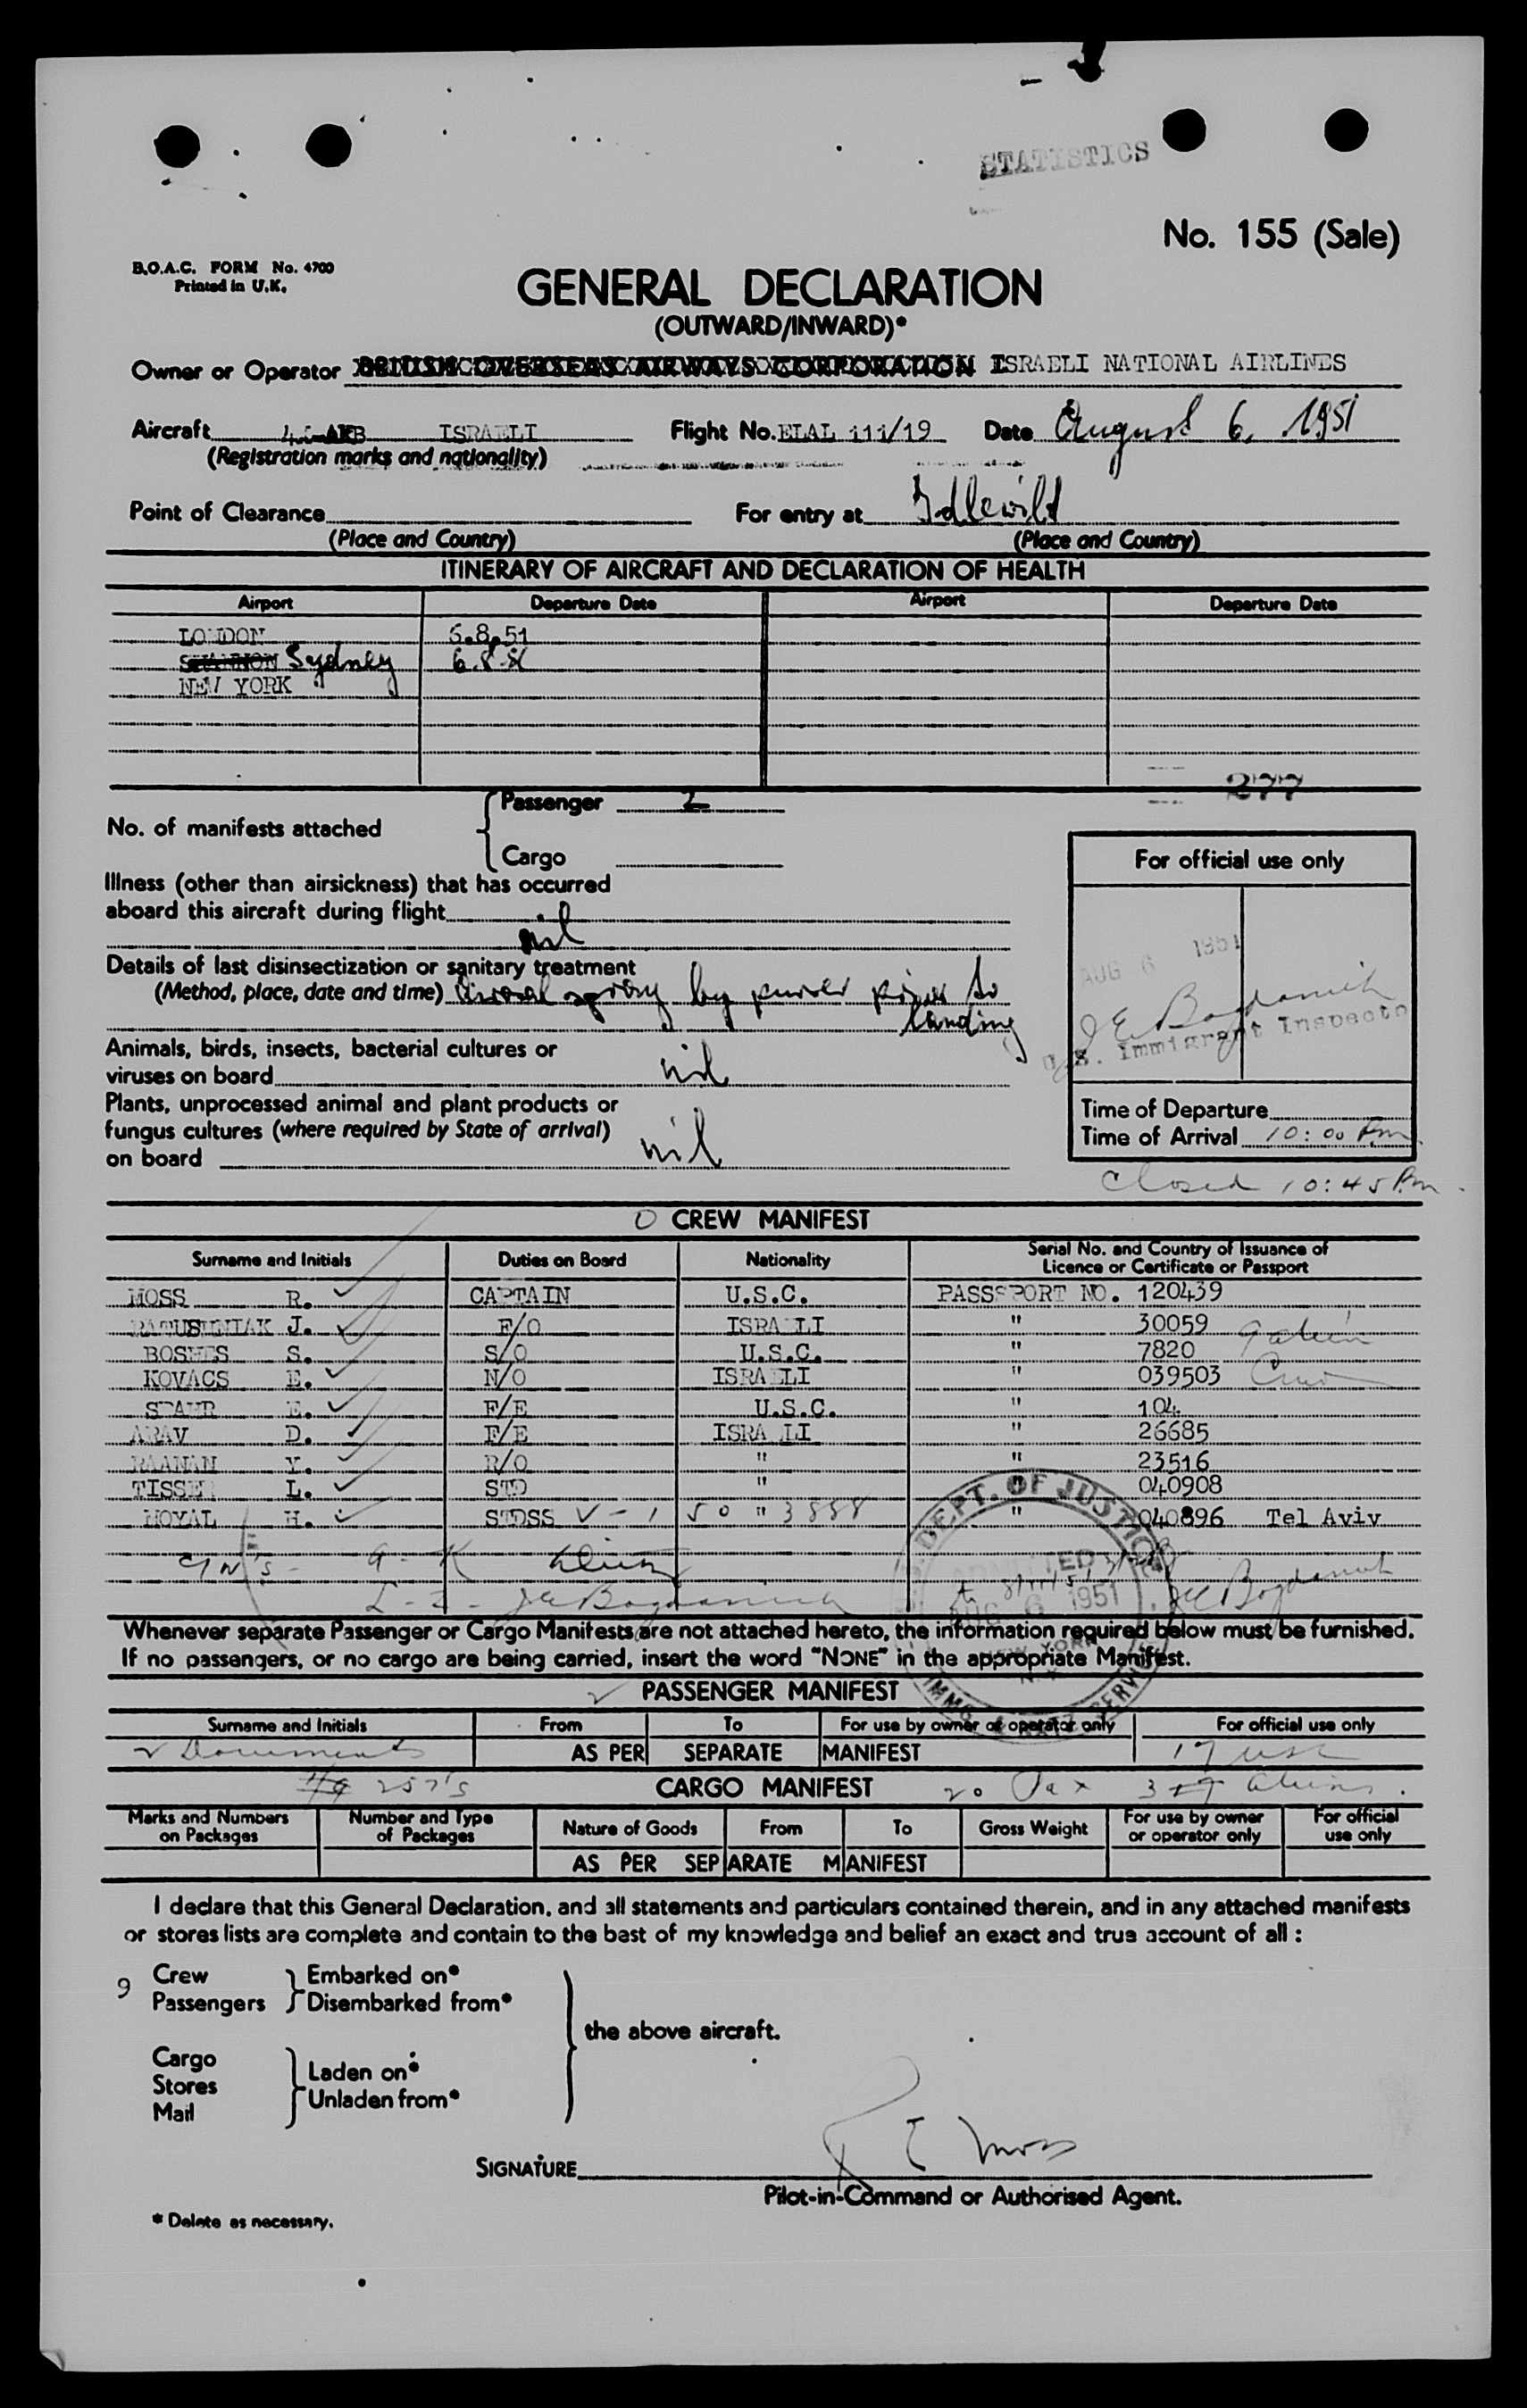 STATISTICS
No. 155 (Sale)
B.O.A.C. FORM No. 4700
Printed in U.K.
GENERAL DECLARATION
(OUTWARD/INWARD)*
Owner or Operator BRITISH OVERSEAS AIRWAYS CORPORATION ISRAELI NATIONAL AIRLINES
Aircraft ISRAELI Flight No. ELAL 111/19 Date August 6, 1951
(Registration marks and nationality)
Point of Clearance For entry at Idlewild
(Place and Country) (Place and Country)
ITINERARY OF AIRCRAFT AND DECLARATION OF HEALTH
Airport Departure Date Airport Departure Date
LONDON 6.8.51
SHANNON Sydney 6.8.51
NEW YORK
277
No. of manifests attached Passenger 2
Cargo
For official use only
Illness (other than airsickness) that has occurred
aboard this aircraft during flight
nil
Details of last disinsectization or sanitary treatment
(Method, place, date and time) spray by purser prior to
landing
AUG 6 1951
J E Bogdanich
U.S. Immigrant Inspector
Animals, birds, insects, bacterial cultures or
viruses on board nil
Plants, unprocessed animal and plant products or
fungus cultures (where required by State of arrival)
on board nil
Time of Departure
Time of Arrival 10:00 Pm
Closed 10:45 Pm
CREW MANIFEST
Surname and Initials Duties on Board Nationality Serial No. and Country of Issuance of
Licence or Certificate or Passport
MOSS R. CAPTAIN U.S.C. PASSSPORT NO. 120439
J. F/O ISRAELI " 30059
S. S/O U.S.C. " 7820
KOVACS E. N/O ISRAELI " 039503
E. F/E U.S.C. " 104
ARAV D. F/E ISRAELI " 26685
RAANAN Y. R/O " " 23516
L. STD " " 040908
MOYAL H. STDSS V-150 " 3888 " 040896 Tel Aviv
J E Bogdanich J E Bogdanich
DEPT. OF JUSTICE
ADMITTED
AUG 6 1951
NEW YORK
N.Y.
IMMIG. & NATZ. SERVICE
Whenever separate Passenger or Cargo Manifests are not attached hereto, the information required below must be furnished.
If no passengers, or no cargo are being carried, insert the word "NONE" in the appropriate Manifest.
PASSENGER MANIFEST
Surname and Initials From To For use by owner or operator only For official use only
2 Documents AS PER SEPARATE MANIFEST 17 USC
257's CARGO MANIFEST 20 Pax 3 Aliens.
Marks and Numbers on Packages Number and Type of Packages Nature of Goods From To Gross Weight For use by owner or operator only For official use only
AS PER SEPARATE MANIFEST
I declare that this General Declaration, and all statements and particulars contained therein, and in any attached manifests
or stores lists are complete and contain to the best of my knowledge and belief an exact and true account of all :
9 Crew Embarked on*
Passengers Disembarked from*
the above aircraft.
Cargo
Stores Laden on*
Mail Unladen from*
SIGNATURE R E Moss
Pilot-in-Command or Authorised Agent.
* Delete as necessary.